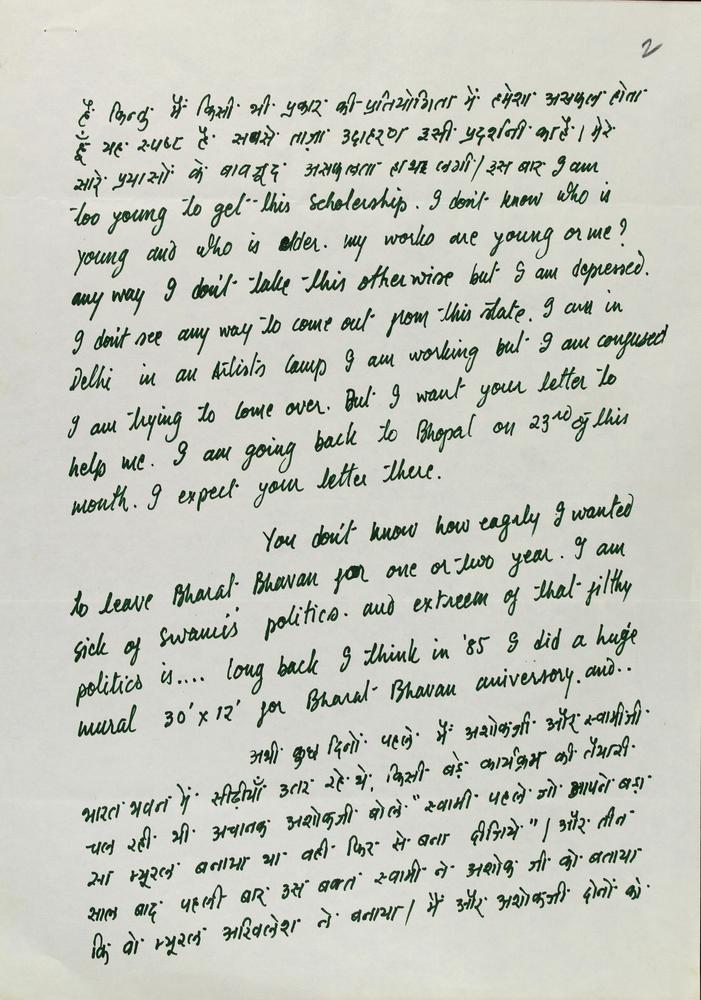 2
हैं किन्तु मैं किसी भी प्रकार की प्रतियोगिता में हमेशा असफल होता
हूँ यह स्पष्ट है. सबसे ताज़ा उदाहरण इसी प्रदर्शनी का है। मेरे
सारे प्रयासों के बावजूद असफलता हाथ लगी। इस बार I am
too young to get this Scholership. I don't know who is
young and who is older. my works are young or me?
any way I don't take this otherwise but I am depressed.
I don't see any way to come out from this state. I am in
Delhi in an Artists Camp I am working but I am confused
I am trying to come over. But I want your letter to
help me. I am going back to Bhopal on 23rd of this
month. I expect your letter there.
You don't know how eagaly I wanted
to leave Bharat Bhavan for one or two year. I am
sick of Swami's politics. and extreem of that filthy
politics is.... long back I think in '85 I did a huge
mural 30' x 12' for Bharat Bhavan aniversory. and..
अभी कुछ दिनों पहले मैं अशोकजी और स्वामीजी
भारत भवन में सीढ़ीयाँ उतर रहे थे. किसी बड़े कार्यक्रम की तैयारी
चल रही थी अचानक अशोकजी बोले "स्वामी पहले जो आपने बड़ा
सा म्यूरल बनाया था वही फिर से बना दीजिये"। और तीन
साल बाद पहली बार उस वक्त स्वामी ने अशोक जी को बताया
कि वो म्यूरल अखिलेश ने बनाया। मैं और अशोकजी दोनों को